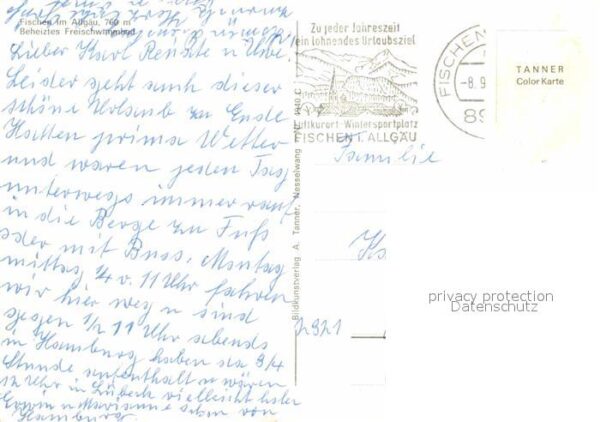 Fischen im Allgäu, 760 m
Beheiztes Freischwimmbad
Lieber Karl Renate u. Uwe.
Leider geht auch dieser
schöne Urlaub zu Ende
Hatten prima Wetter
und waren jeden Tag
unterwegs immer rauf
in die Berge zu Fuß
oder mit Buss. Montag
mittag 1/4 v. 11 Uhr fahren
wir hier weg u sind
gegen 1/2 11 Uhr abends
in Hamburg haben da 3/4
Stunde aufenthalt u wären
12 Uhr in Lübeck vielleicht holen
Erwin u Marianne schon von
Hamburg
Zu jeder Jahreszeit
ein lohnendes Urlaubsziel
Luftkurort - Wintersportplatz
FISCHEN I. ALLGÄU
FISCHEN
-8.9
89
TANNER
Color Karte
Bildkunstverlag A. Tanner, Nesselwang
Familie
2321
privacy protection
Datenschutz